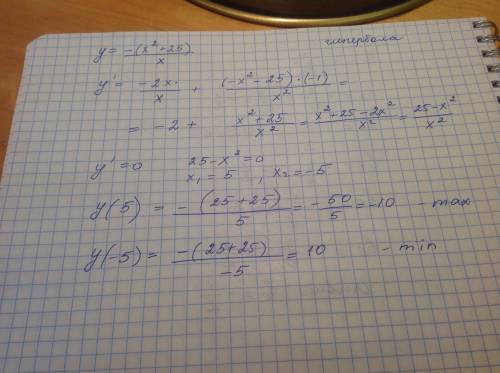 гипербола
y = -(x² + 25) / x
y' = -2x· / x + (-x² - 25)·(-1) / x² =
= -2 + x² + 25 / x² = x² + 25 - 2x² / x² = 25 - x² / x²
y' = 0 25 - x² = 0
x₁ = 5 , x₂ = -5
y(5) = -(25 + 25) / 5 = -50 / 5 = -10 - max
y(-5) = -(25 + 25) / -5 = 10 - min